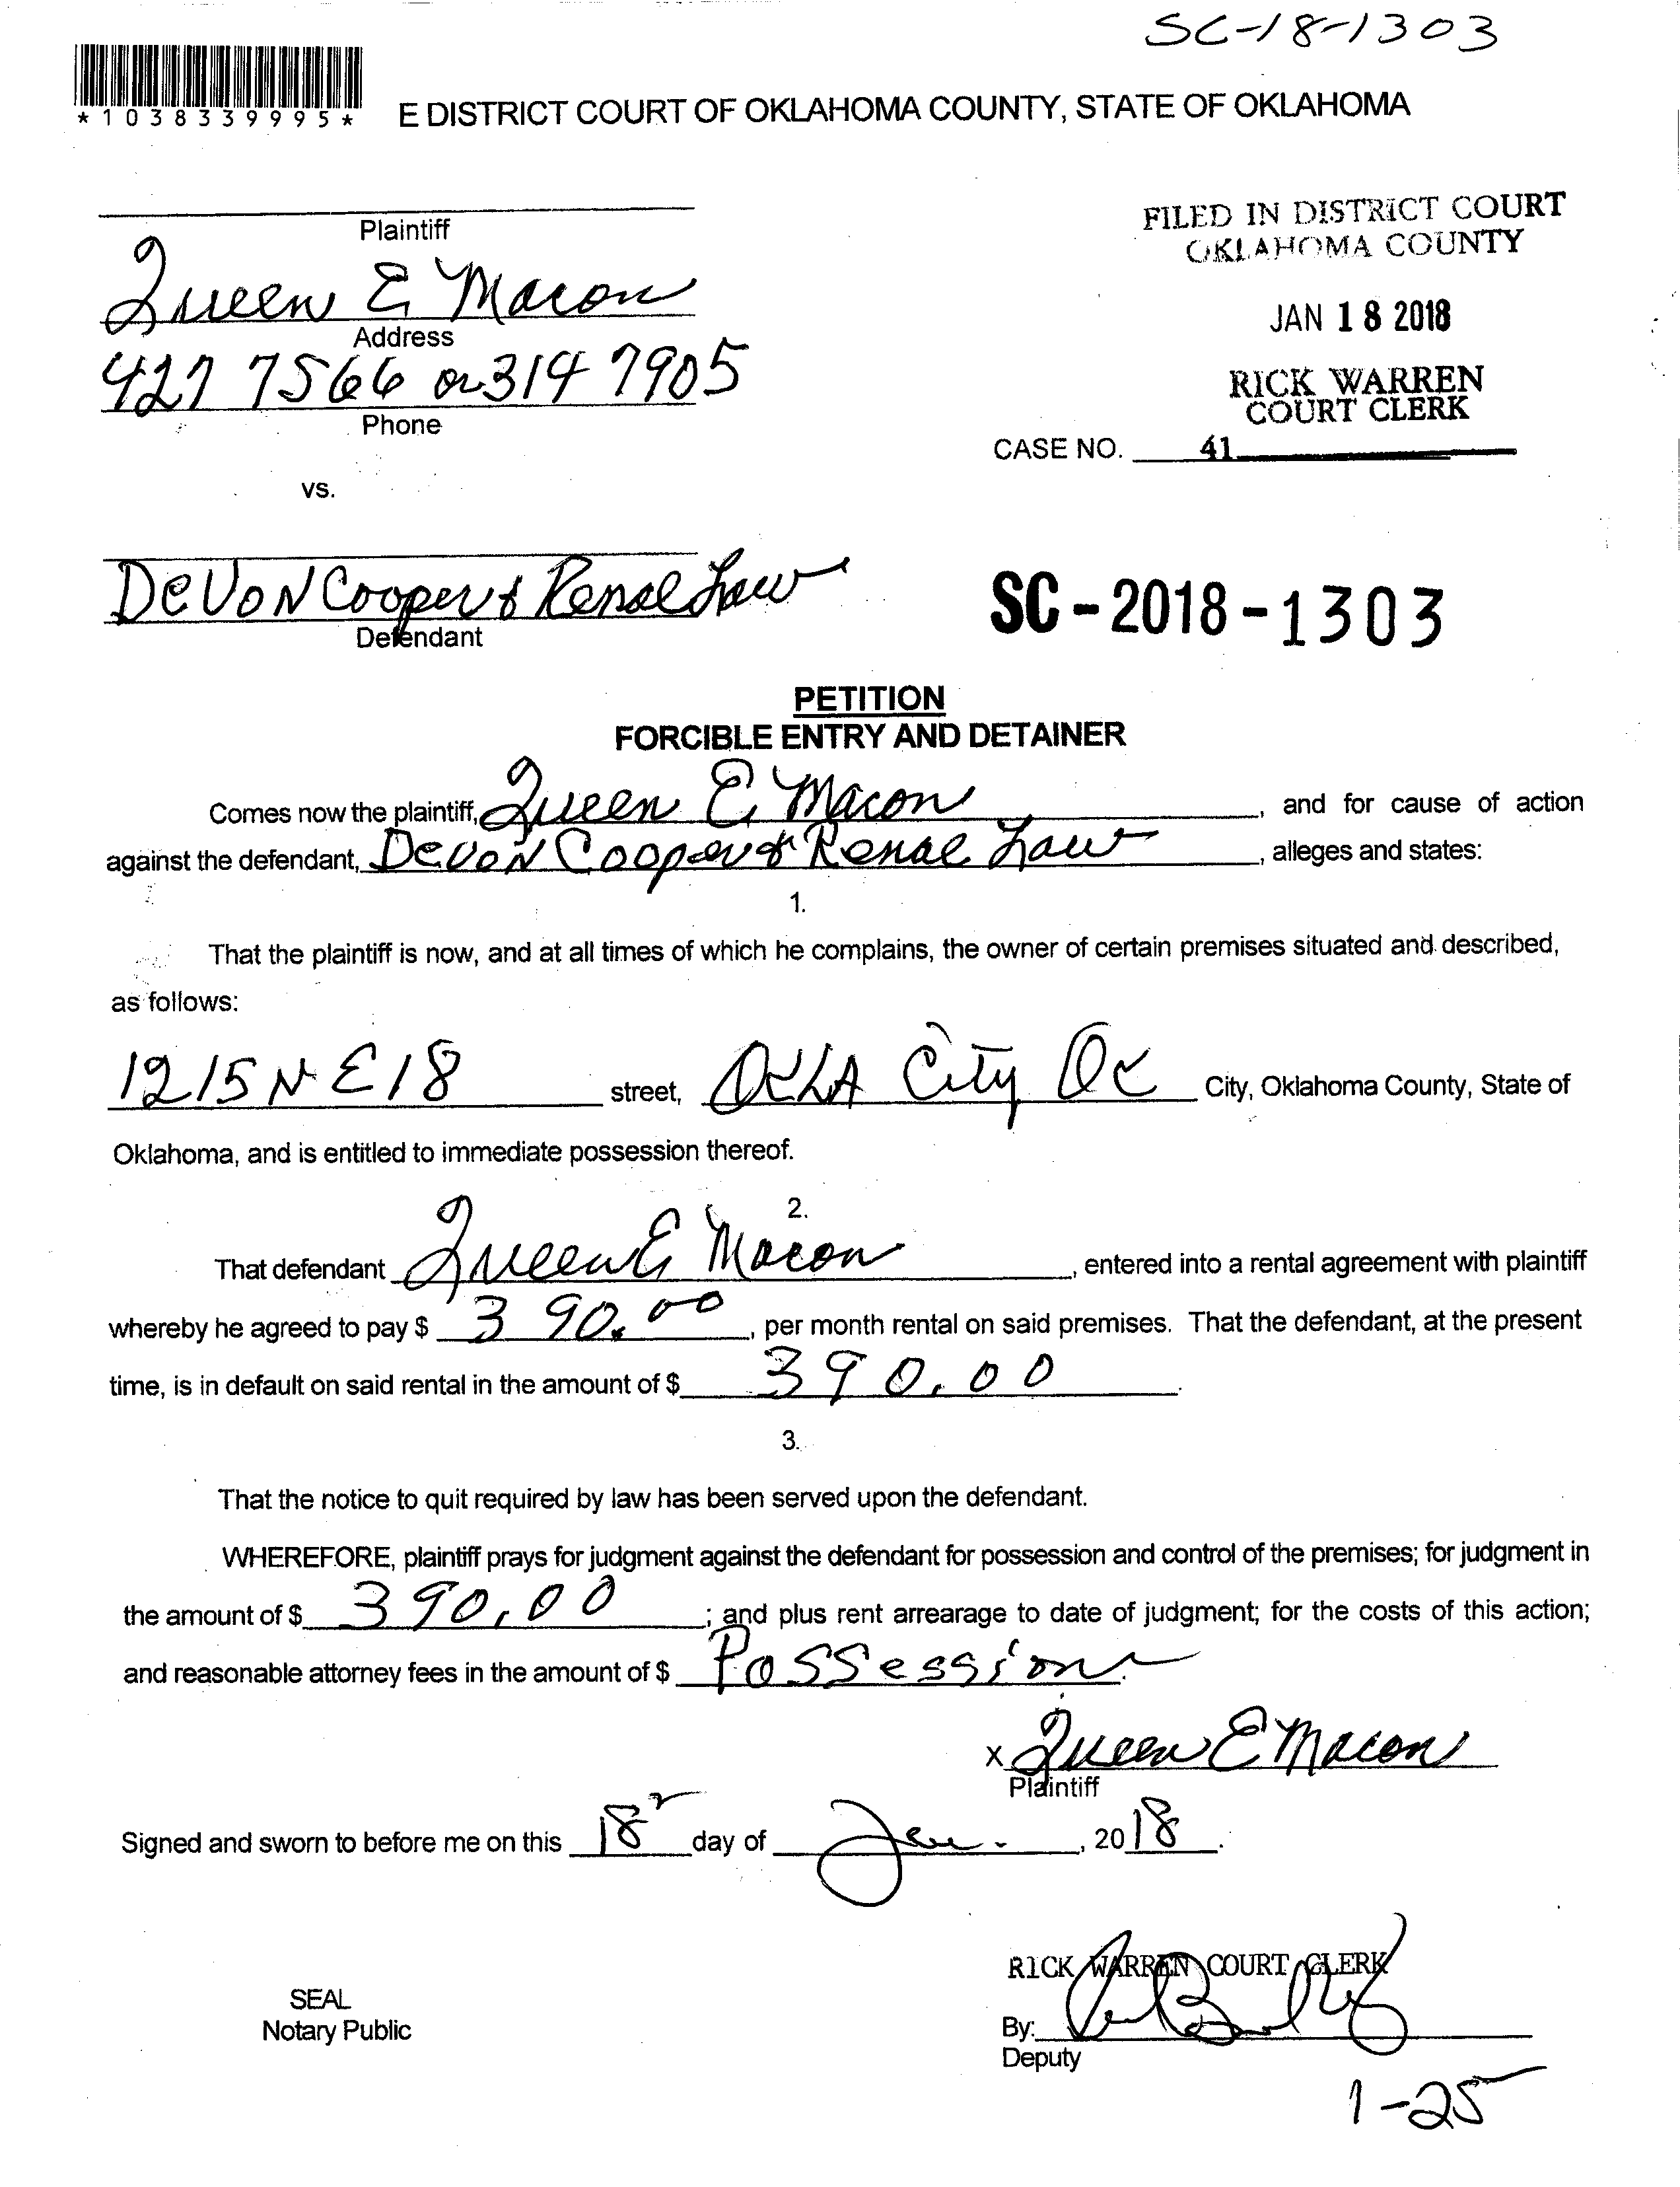 SC-18-1303
*1038339995*
E DISTRICT COURT OF OKLAHOMA COUNTY, STATE OF OKLAHOMA
FILED IN DISTRICT COURT
OKLAHOMA COUNTY
Plaintiff
Queen E Macon
Address
JAN 18 2018
427 7566 or 314 7905
Phone
RICK WARREN
COURT CLERK
CASE NO. 41
vs.
DeVoN Cooper & Renae Law
Defendant
SC-2018-1303
PETITION
FORCIBLE ENTRY AND DETAINER
Comes now the plaintiff, Queen E Macon, and for cause of action
against the defendant, Devon Cooper & Renae Law, alleges and states:
1.
That the plaintiff is now, and at all times of which he complains, the owner of certain premises situated and described,
as follows:
1215 N E 18 street, OKLA City OK City, Oklahoma County, State of
Oklahoma, and is entitled to immediate possession thereof.
2.
That defendant Queen E Macon, entered into a rental agreement with plaintiff
whereby he agreed to pay $ 390.00, per month rental on said premises. That the defendant, at the present
time, is in default on said rental in the amount of $ 390.00.
3.
That the notice to quit required by law has been served upon the defendant.
WHEREFORE, plaintiff prays for judgment against the defendant for possession and control of the premises; for judgment in
the amount of $ 390.00; and plus rent arrearage to date of judgment; for the costs of this action;
and reasonable attorney fees in the amount of $ Possession.
X Queen E Macon
Plaintiff
Signed and sworn to before me on this 18 day of Jan., 2018.
RICK WARREN COURT CLERK
SEAL
Notary Public
By:
Deputy
1-25